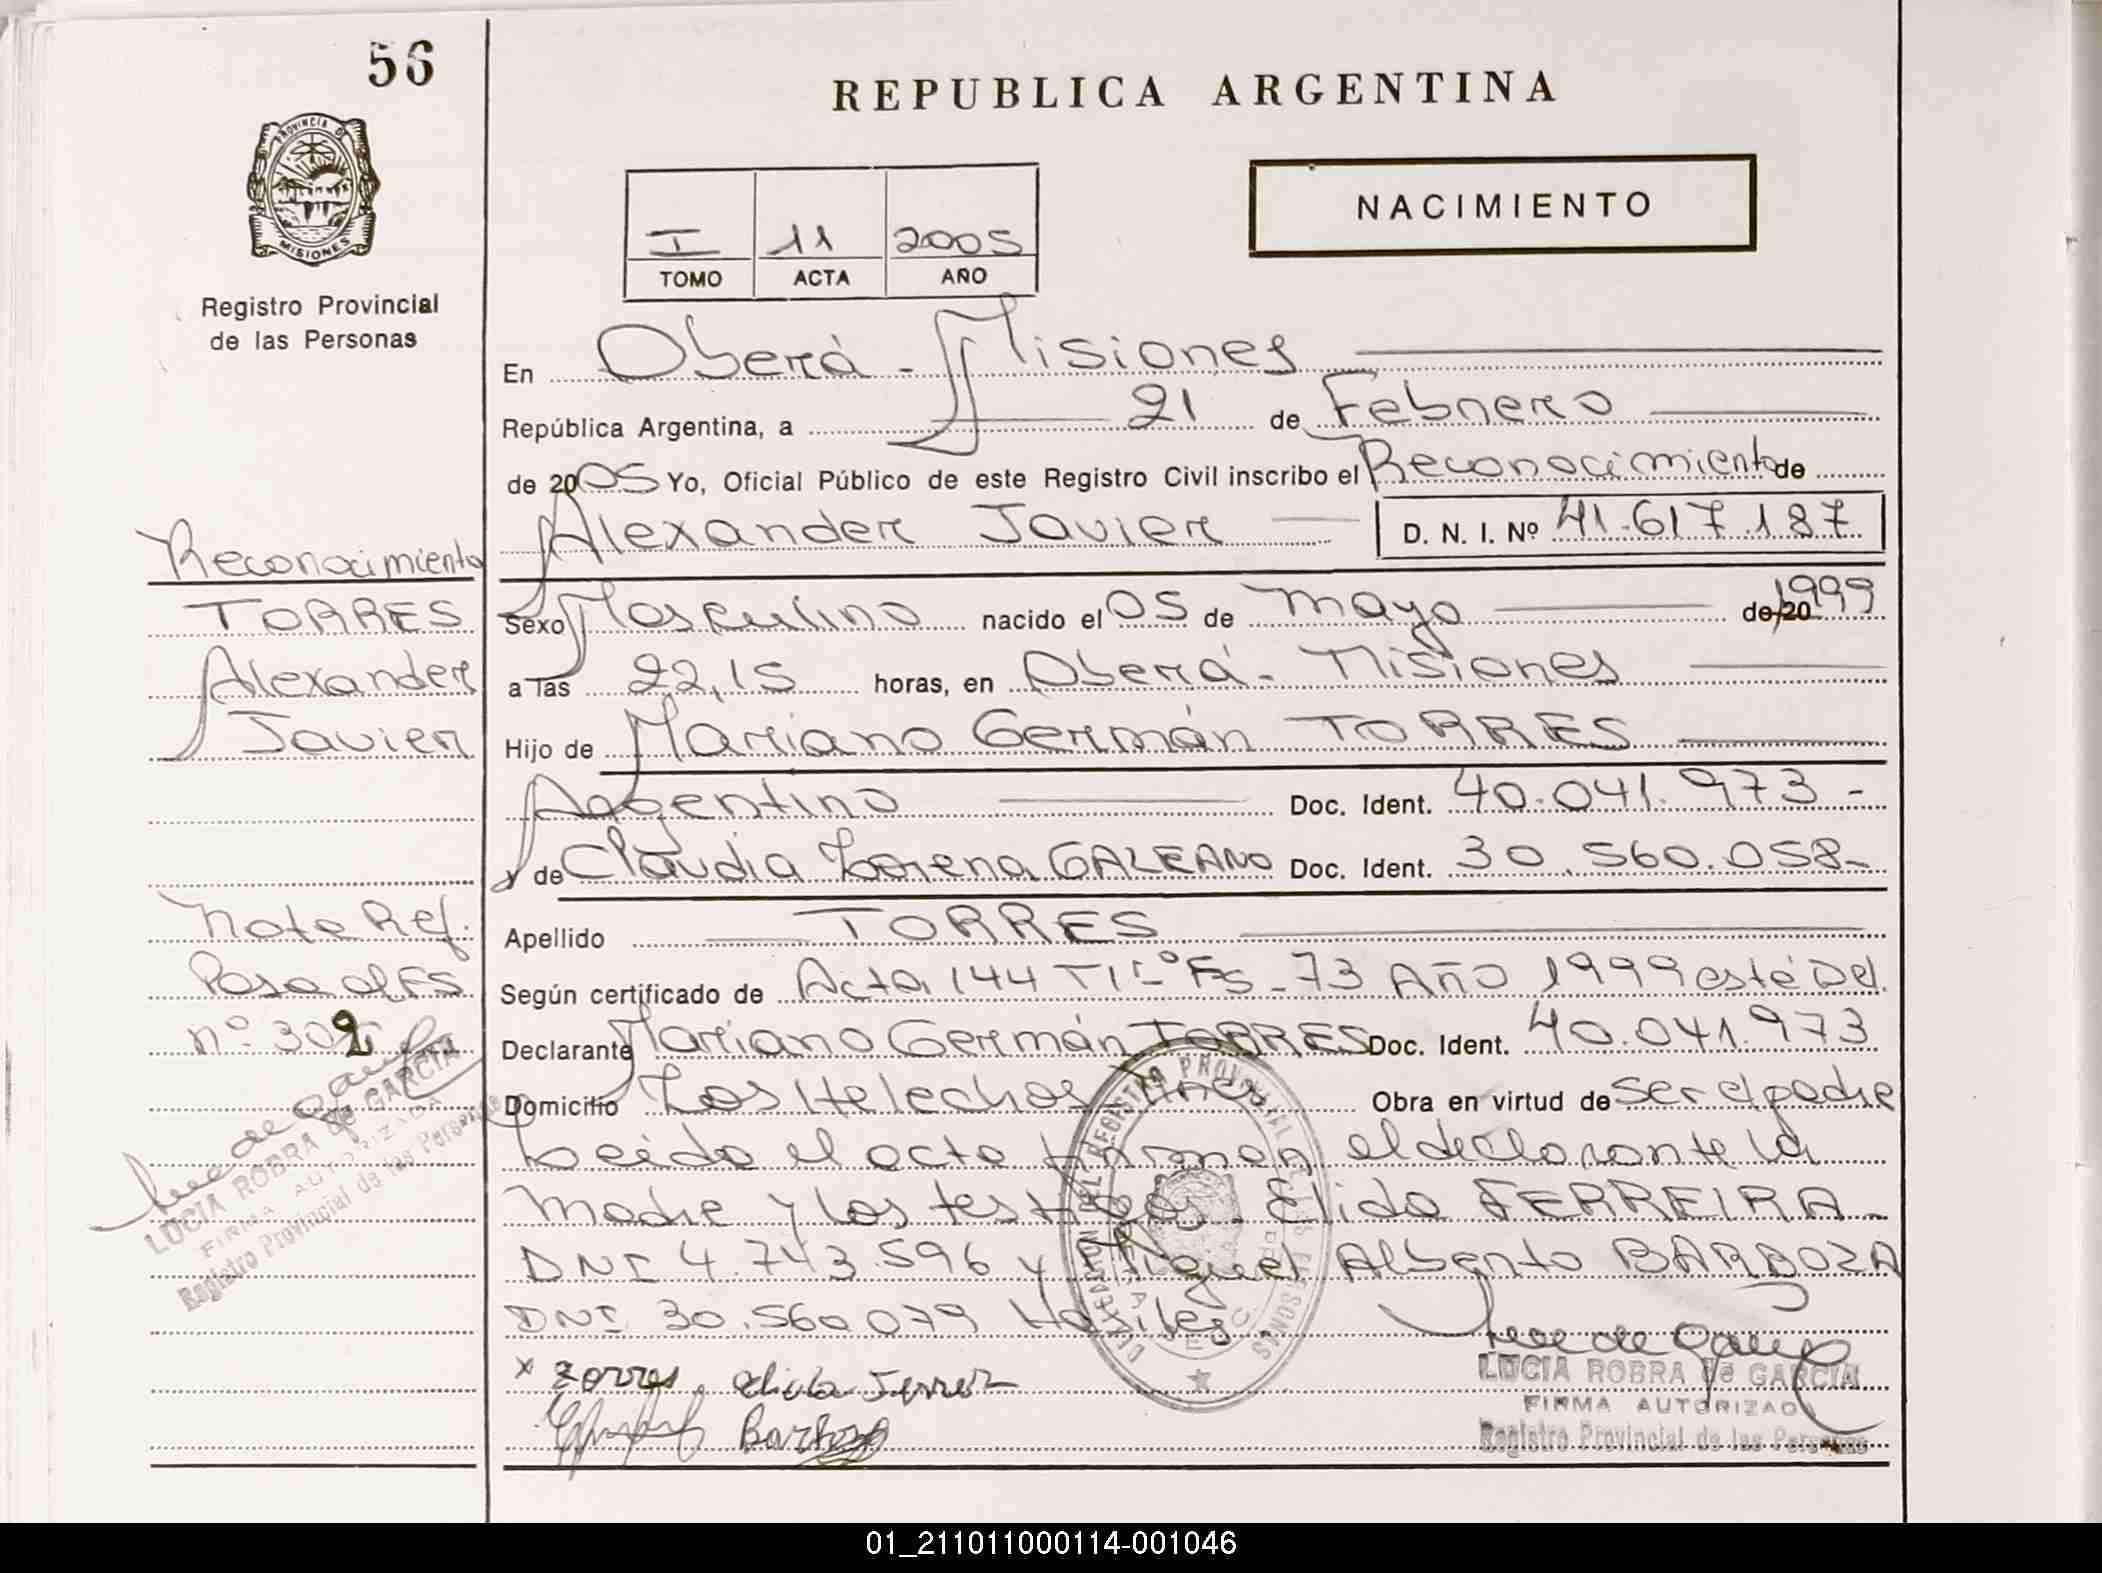 56
REPUBLICA ARGENTINA
PROVINCIA DE
MISIONES
Registro Provincial
de las Personas
I 11 2005
TOMO ACTA AÑO
NACIMIENTO
En Oberá - Misiones
República Argentina, a 21 de Febrero
de 2005 Yo, Oficial Público de este Registro Civil inscribo el Reconocimiento de
Alexander Javier D. N. I. Nº 41.617.187
Sexo Masculino nacido el 05 de mayo de 20 1999
a las 22,15 horas, en Oberá - Misiones
Hijo de Mariano Germán TORRES
Argentino Doc. Ident. 40.041.973 -
y de Claudia Lorena GALEANO Doc. Ident. 30.560.058-
Apellido TORRES
Según certificado de Acta 144 T1º Fs - 73 Año 1999 esté Del.
Declarante Mariano Germán TORRES Doc. Ident. 40.041.973
Domicilio Los Helechos Mnes Obra en virtud de ser el padre
Leida el acta firman el declarante la
Madre y los testigos - Elida FERREIRA -
DNI 4.743.596 y Miguel Alberto BARBOZA
DNI 30.560.079 Hábiles.
x Torres elida Ferrer
Barboza
LUCIA ROBRA de GARCIA
FIRMA AUTORIZADA
Registro Provincial de las Personas
Reconocimiento
TORRES
Alexander
Javier
Nota Ref.
Pasa al FS
nº 302
LUCIA ROBRA de GARCIA
FIRMA AUTORIZADA
Registro Provincial de las Personas
01_211011000114-001046